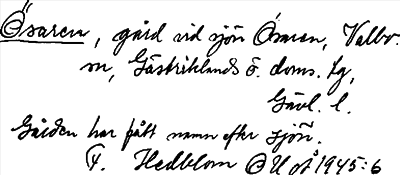 Ösaren, gård vid sjön Ösaren, Valbo
sn, Gästriklands ö. doms. tg,
Gävl. l.
Gården har fått namn efter sjön.
F. Hedblom OUoÅ 1945:6